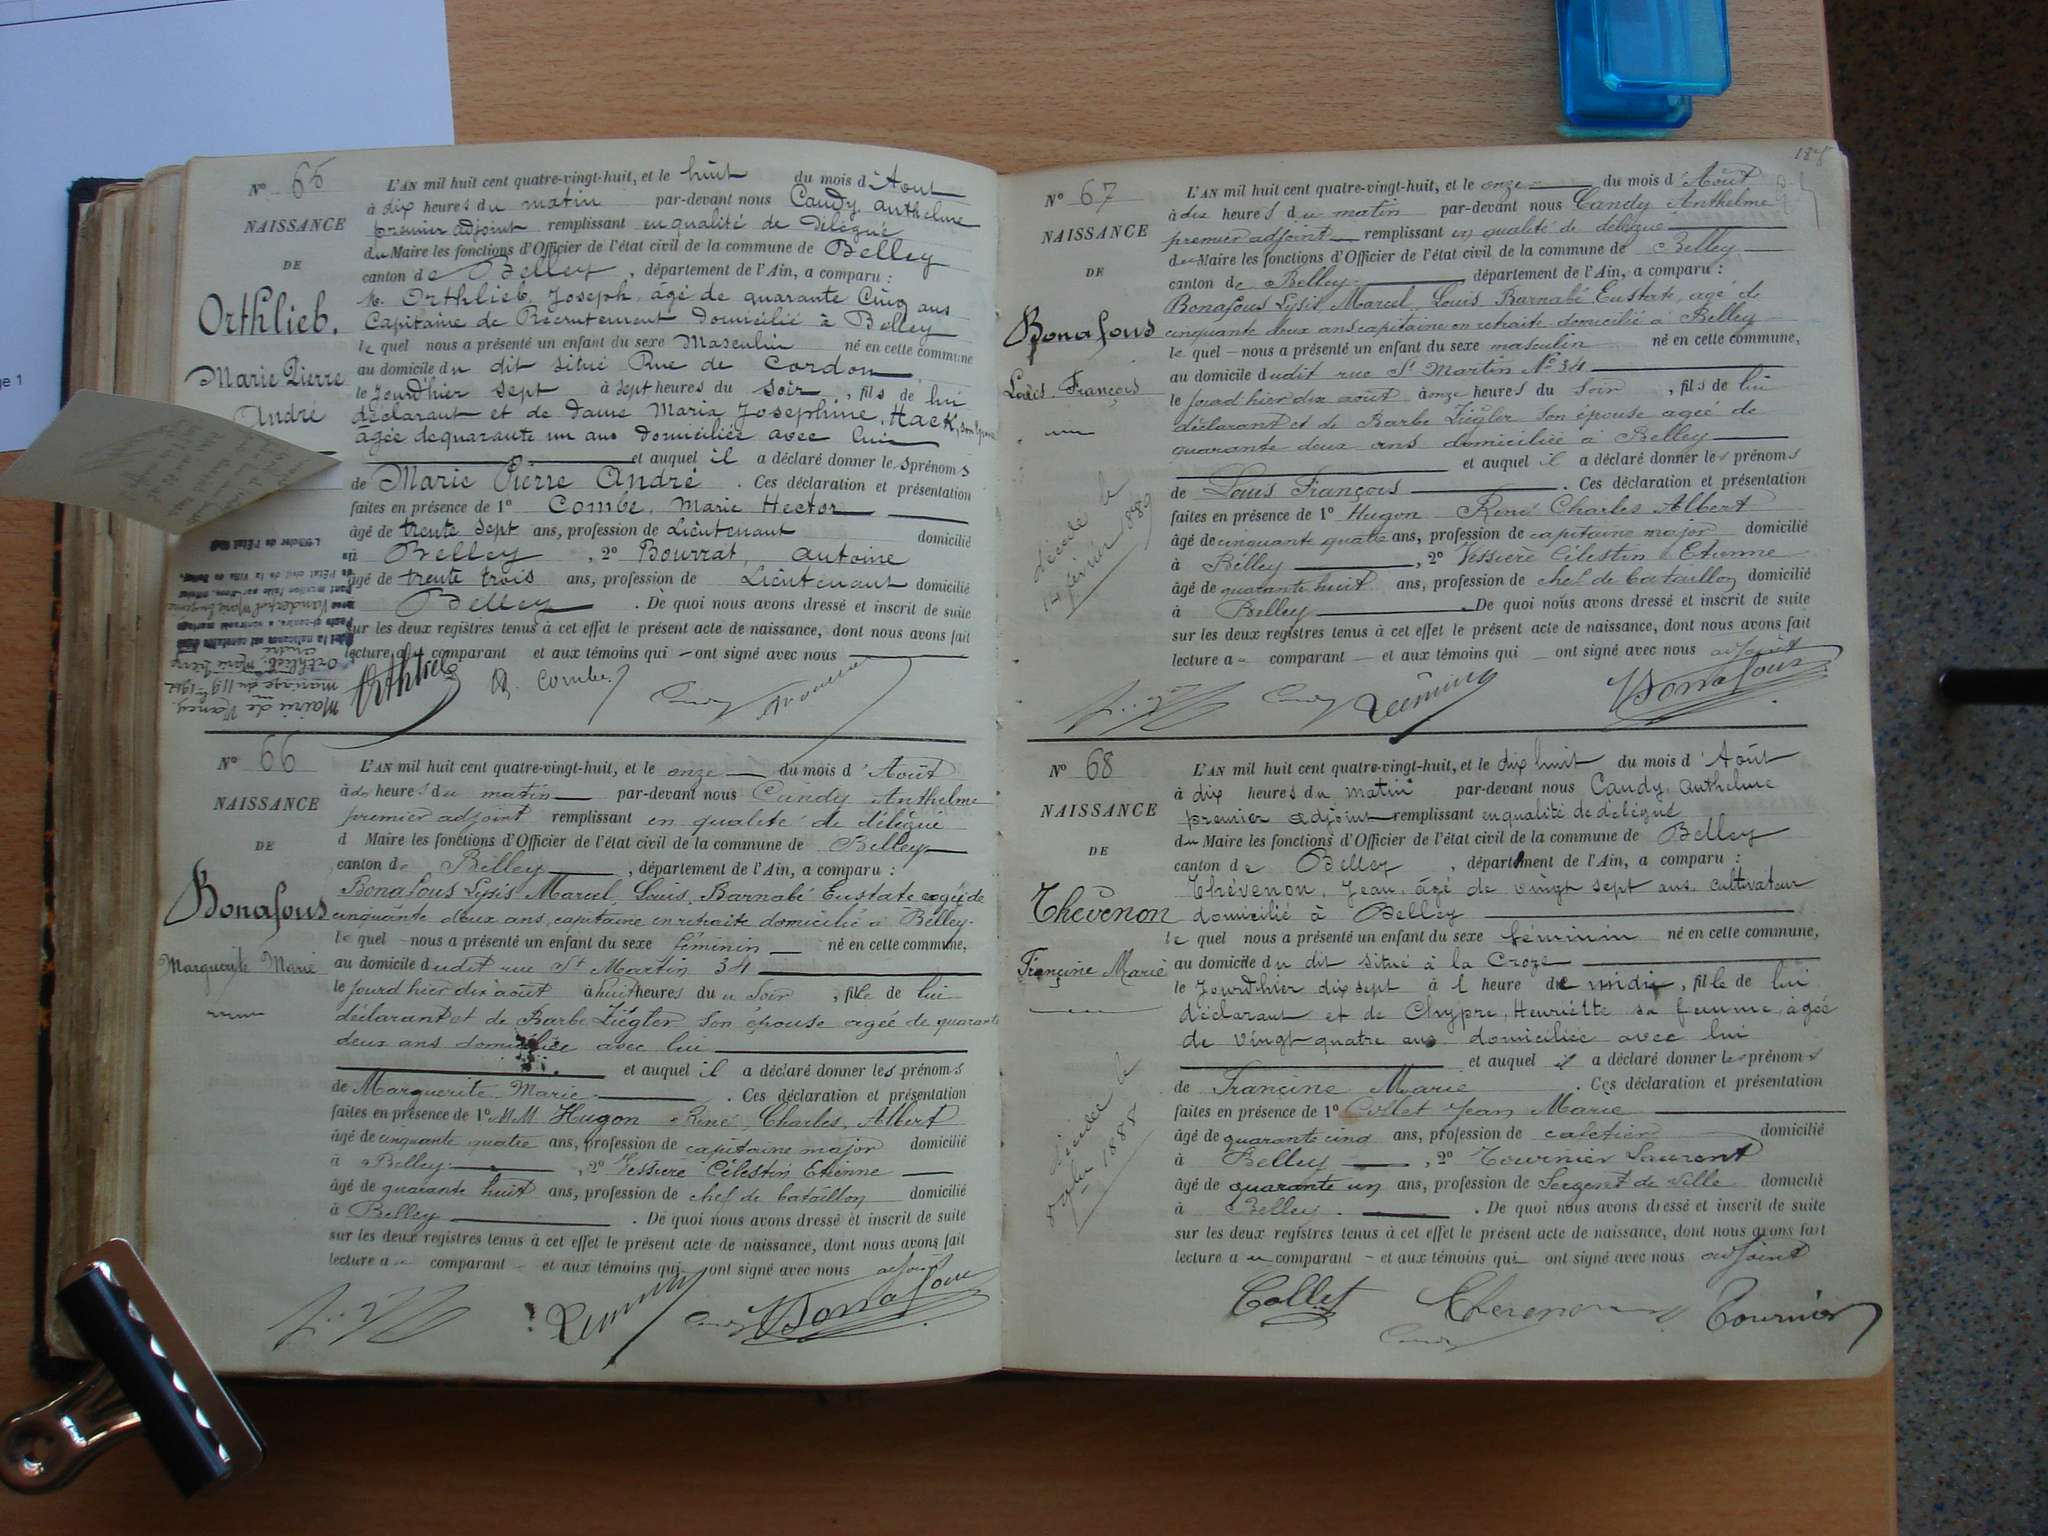 N° 65
NAISSANCE
DE
Orthlieb.
Marie Pierre
André
L'AN mil huit cent quatre-vingt-huit, et le huit du mois d'Août
à dix heures du matin par-devant nous Candy, Anthelme
premier adjoint remplissant en qualité de Délégué
du Maire les fonctions d'Officier de l'état civil de la commune de Belley
canton de Belley, département de l'Ain, a comparu :
M. Orthlieb, Joseph, âgé de quarante cinq ans
Capitaine de Recrutement domicilié à Belley
lequel nous a présenté un enfant du sexe Masculin né en cette commune
au domicile du dit situé Rue de Cordon
le jourd'hier sept à sept heures du soir, fils de lui
déclarant et de dame Maria Josephine, Hack, son épouse
âgée de quarante un ans domiciliée avec lui
et auquel il a déclaré donner les prénoms
de Marie Pierre André. Ces déclaration et présentation
faites en présence de 1° Combe, Marie Hector
âgé de trente sept ans, profession de Lieutenant domicilié
à Belley, 2° Bourrat, Antoine
âgé de trente trois ans, profession de Lieutenant domicilié
Belley. De quoi nous avons dressé et inscrit de suite
sur les deux registres tenus à cet effet le présent acte de naissance, dont nous avons fait
lecture au comparant et aux témoins qui ont signé avec nous
Mairie de Nancy.
mariage du 11 9bre 1912
Orthlieb, Marie Pierre
André
Orthlieb Combe Candy
N° 66
NAISSANCE
DE
Bonafous
Marguerite Marie
L'AN mil huit cent quatre-vingt-huit, et le onze du mois d'Août
à dix heures du matin par-devant nous Candy Anthelme
premier adjoint remplissant en qualité de délégué
d Maire les fonctions d'Officier de l'état civil de la commune de Belley
canton de Belley, département de l'Ain, a comparu :
Bonafous Lysis Marcel, Louis, Barnabé Eustate agé de
cinquante deux ans, capitaine en retraite domicilié à Belley.
lequel nous a présenté un enfant du sexe féminin né en cette commune,
au domicile dudit rue St Martin 34
le jourd'hier dix août à huit heures du soir, fille de lui
déclarant et de Barbe Ziégler son épouse agée de quarante
deux ans domiciliée avec lui
et auquel il a déclaré donner les prénoms
de Marguerite Marie. Ces déclaration et présentation
faites en présence de 1° MM Hugon René, Charles, Albert
âgé de cinquante quatre ans, profession de capitaine major domicilié
à Belley, 2° Vessière Célestin Etienne
âgé de quarante huit ans, profession de chef de bataillon domicilié
à Belley. De quoi nous avons dressé et inscrit de suite
sur les deux registres tenus à cet effet le présent acte de naissance, dont nous avons fait
lecture a comparant et aux témoins qui ont signé avec nous adjoint
Candy Bonafous
N° 67
NAISSANCE
DE
Bonafous
Louis François
décédé le
14 février 1889
L'AN mil huit cent quatre-vingt-huit, et le onze du mois d'Août
à dix heures du matin par-devant nous Candy Anthelme
premier adjoint remplissant en qualité de délégué
du Maire les fonctions d'Officier de l'état civil de la commune de Belley
canton de Belley département de l'Ain, a comparu :
Bonafous Lysis, Marcel, Louis, Barnabé Eustate, agé de
cinquante deux ans capitaine en retraite domicilié à Belley
lequel nous a présenté un enfant du sexe masculin né en cette commune,
au domicile dudit rue St Martin N° 34
le jourd'hier dix août à onze heures du soir, fils de lui
déclarant et de Barbe Ziégler son épouse agée de
quarante deux ans domiciliée à Belley
et auquel il a déclaré donner les prénoms
de Louis François. Ces déclaration et présentation
faites en présence de 1° Hugon René Charles Albert
âgé de cinquante quatre ans, profession de capitaine major domicilié
à Belley, 2° Vessière Célestin Etienne
âgé de quarante huit ans, profession de chef de bataillon domicilié
à Belley. De quoi nous avons dressé et inscrit de suite
sur les deux registres tenus à cet effet le présent acte de naissance, dont nous avons fait
lecture a comparant et aux témoins qui ont signé avec nous adjoint
Candy Bonafous
N° 68
NAISSANCE
DE
Thévenon
Françine Marie
décédée le
1888
L'AN mil huit cent quatre-vingt-huit, et le dix huit du mois d'Août
à dix heures du matin par-devant nous Candy, Anthelme
premier adjoint remplissant en qualité de délégué
du Maire les fonctions d'Officier de l'état civil de la commune de Belley
canton de Belley, département de l'Ain, a comparu :
Thévenon, Jean, âgé de vingt sept ans, cultivateur
domicilié à Belley
lequel nous a présenté un enfant du sexe féminin né en cette commune,
au domicile du dit situé à la Croze
le jourd'hier dix sept à 1 heure de midi, fille de lui
déclarant et de Chypre, Henriette sa femme, âgée
de vingt quatre ans domiciliée avec lui
et auquel il a déclaré donner les prénoms
de Françine Marie. Ces déclaration et présentation
faites en présence de 1° Collet Jean Marie
âgé de quarante cinq ans, profession de cafetier domicilié
à Belley, 2° Tournier Laurent
âgé de quarante un ans, profession de Sergent de Ville domicilié
à Belley. De quoi nous avons dressé et inscrit de suite
sur les deux registres tenus à cet effet le présent acte de naissance, dont nous avons fait
lecture au comparant et aux témoins qui ont signé avec nous adjoint
Collet Thevenon Tournier
Candy